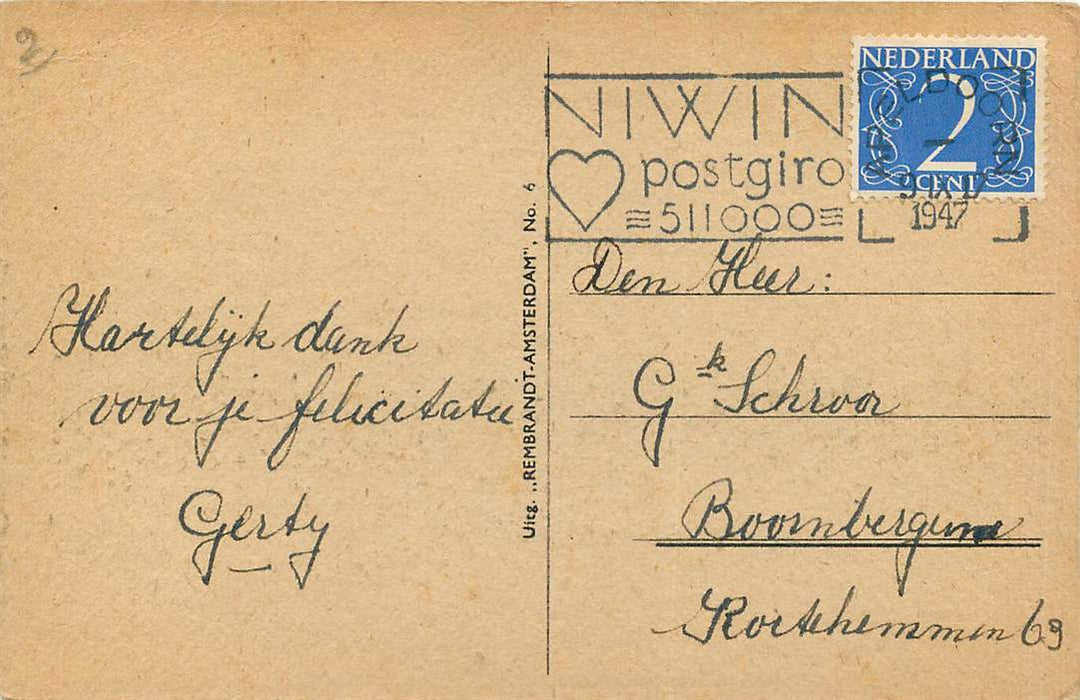 2
Hartelijk dank
voor je felicitatie
Gerty
Uitg. „REMBRANDT-AMSTERDAM”, No. 6
NIWIN
postgiro
511000
NEDERLAND
2
CENT
APELDOORN
9 IX 17
1947
Den Heer:
G Schroor
Boornbergum
Kortehemmen 63